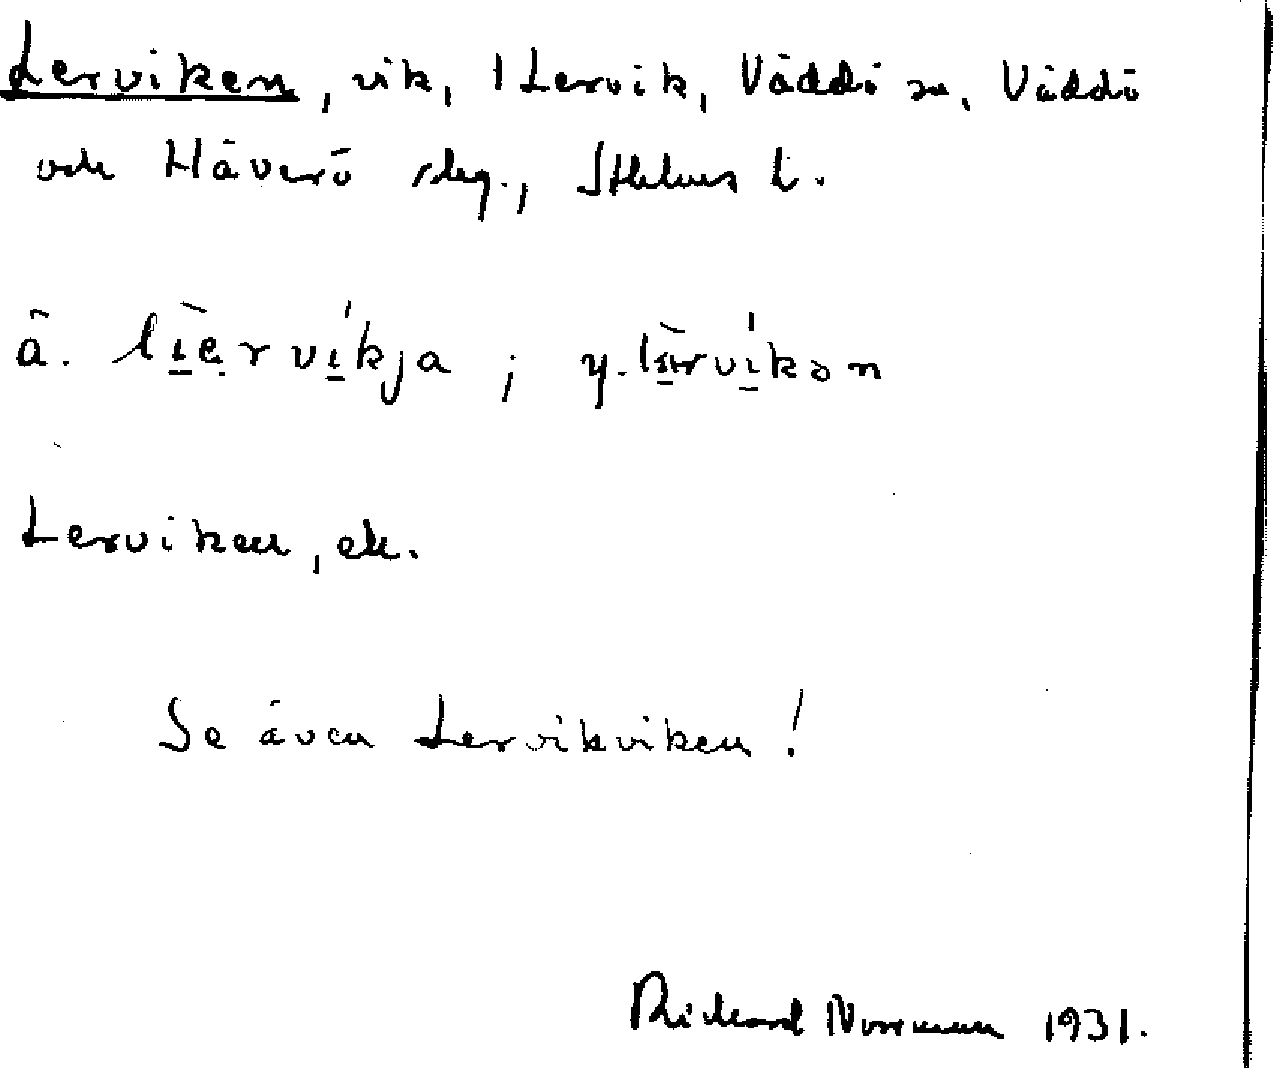 Lerviken, vik, 1 Lervik, Väddö sn, Väddö
och Häverö skg., Sthlms l.
ä. līervíkja ; y. lérvíkən
Lerviken, ek.
Se även Lervikviken!
Rickard Norrman 1931.